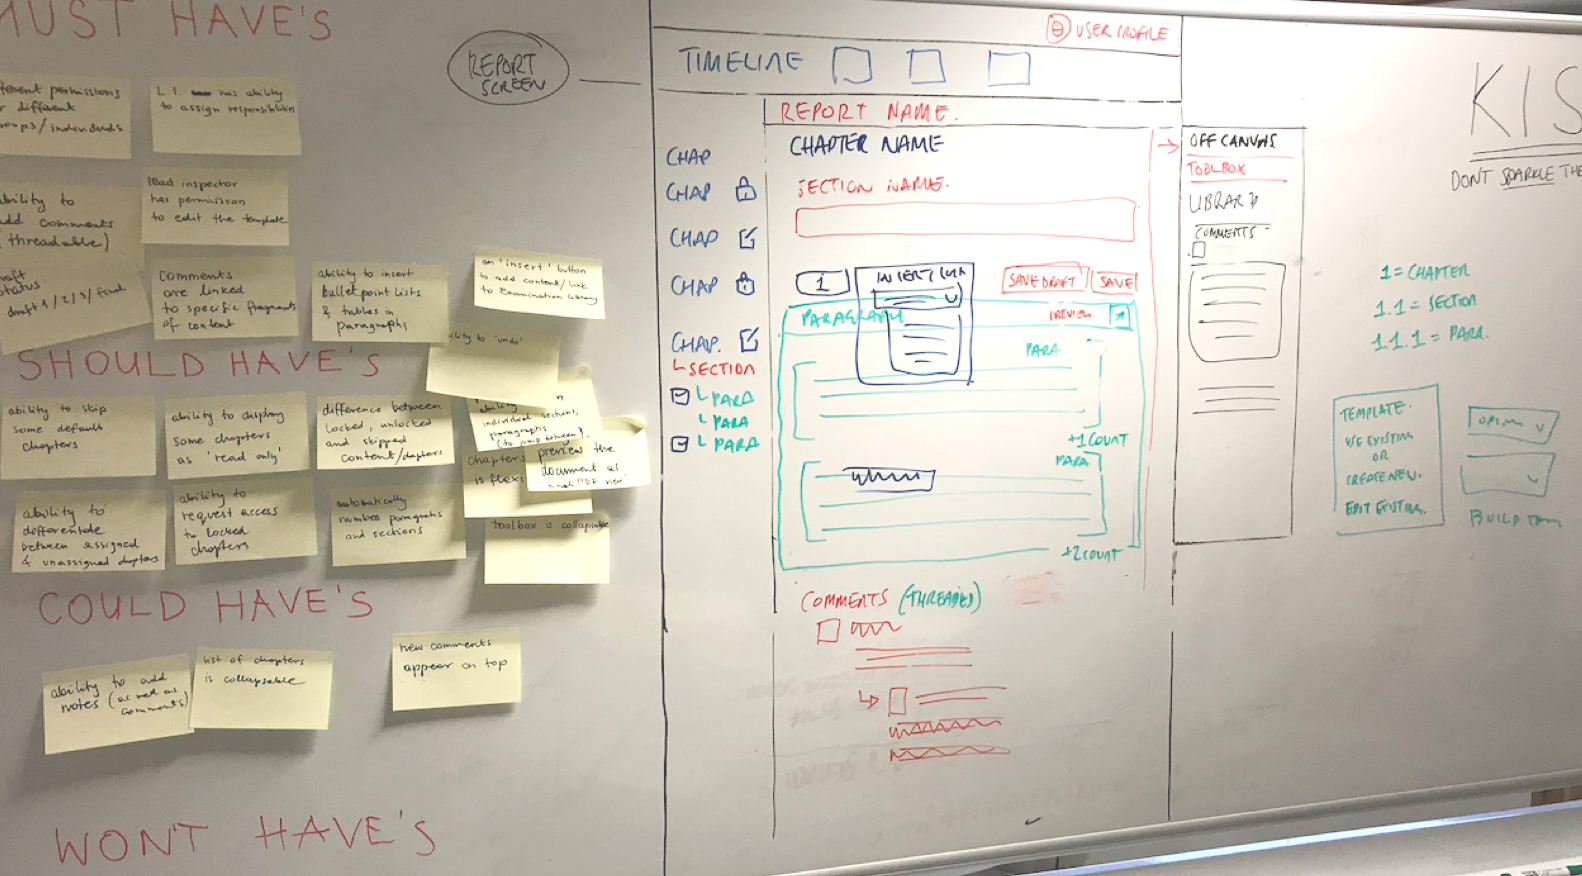 MUST HAVE'S
fferent permissions
r different
roups/individuals
L.I. has ability
to assign responsibilities
bility to
dd comments
threadable)
lead inspector
has permission
to edit the template
raft
status:
draft 1/2/3/final
comments
are linked
to specific fragments
of content
ability to insert
bullet point lists
& tables in
paragraphs
an 'insert' button
to add content/link
to Examination Library
ility to 'undo'
SHOULD HAVE'S
ability to skip
some default
chapters
ability to display
some chapters
as 'read only'
difference between
locked, unlocked
and skipped
content/chapters
individual sections,
paragraphs
(to jump between)
chapters
is flexi
preview the
document as
ability to
differentiate
between assigned
& unassigned chapters
ability to
request access
to locked
chapters
automatically
number paragraphs
and sections
toolbox is collapsable
COULD HAVE'S
ability to add
notes (as well as
comments)
list of chapters
is collapsable
new comments
appear on top
WON'T HAVE'S
REPORT
SCREEN
USER PROFILE
TIMELINE
REPORT NAME.
CHAP
CHAP
CHAP
CHAP
CHAP.
SECTION
PARA
PARA
PARA
CHAPTER NAME
SECTION NAME.
1
INSERT LINK
SAVE DRAFT
SAVE
PARAGRAPH
PREVIEW
PARA
+1 COUNT
PARA
+2 COUNT
COMMENTS (THREADED)
OFF CANVAS
TOOLBOX
LIBRARY
COMMENTS
KIS
DONT SPARKLE THE
1 = CHAPTER
1.1 = SECTION
1.1.1 = PARA.
TEMPLATE.
USE EXISTING
OR
CREATE NEW.
EDIT EXISTING.
BUILD